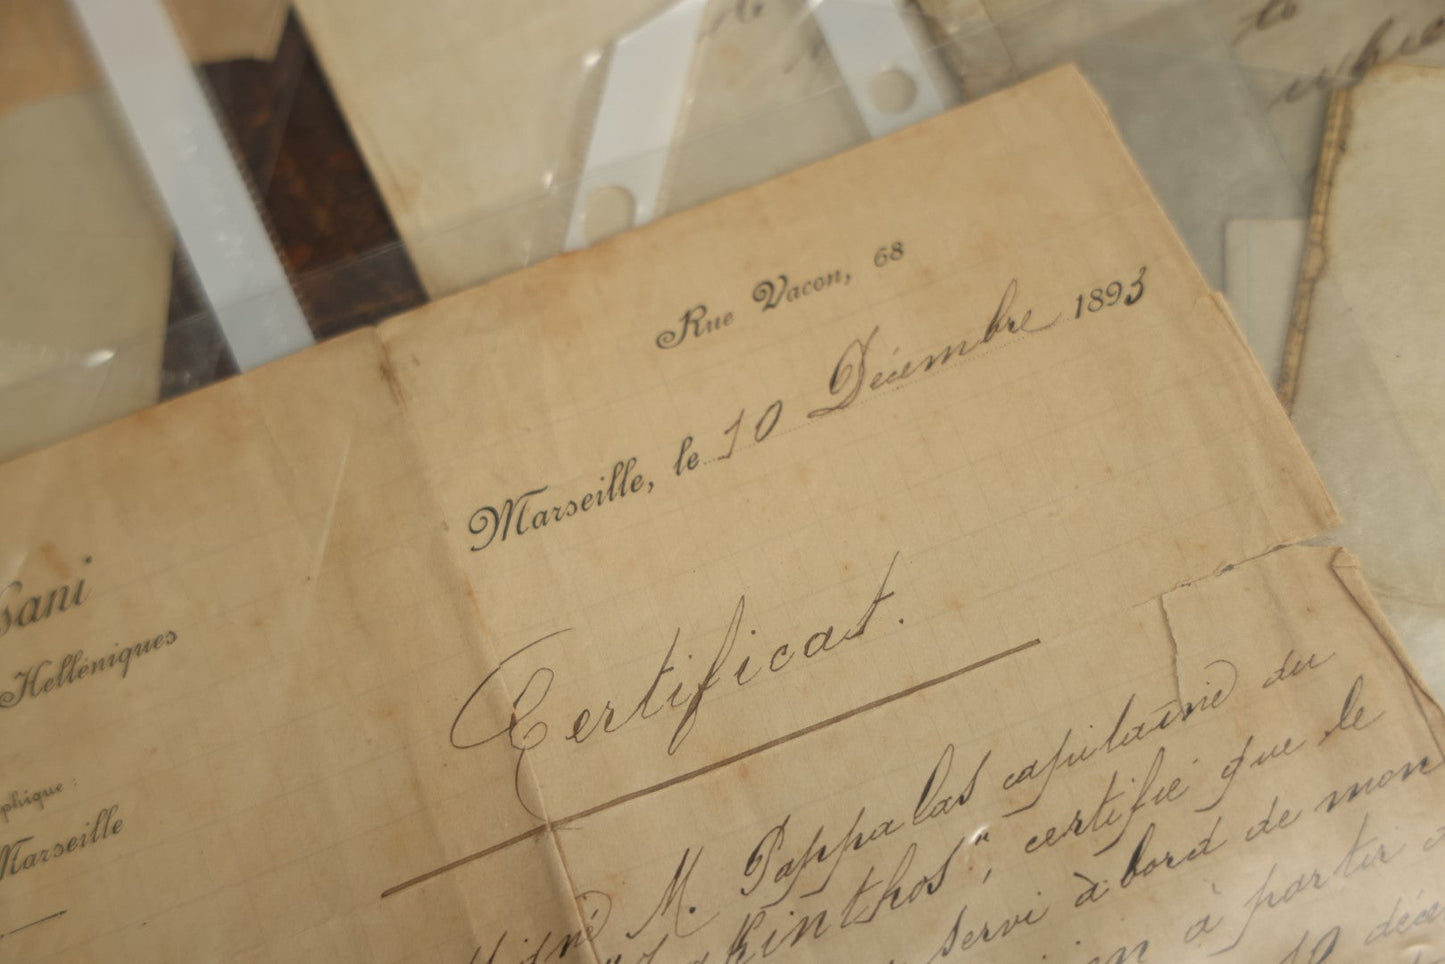 Rue Vacon, 68
Marseille, le 10 Décembre 1893
sani
Helléniques
phique:
Marseille
Certificat.
M. Pappalas capitaine du
kinthos", certifié que le
servi à bord de mon
à partir
10 déce